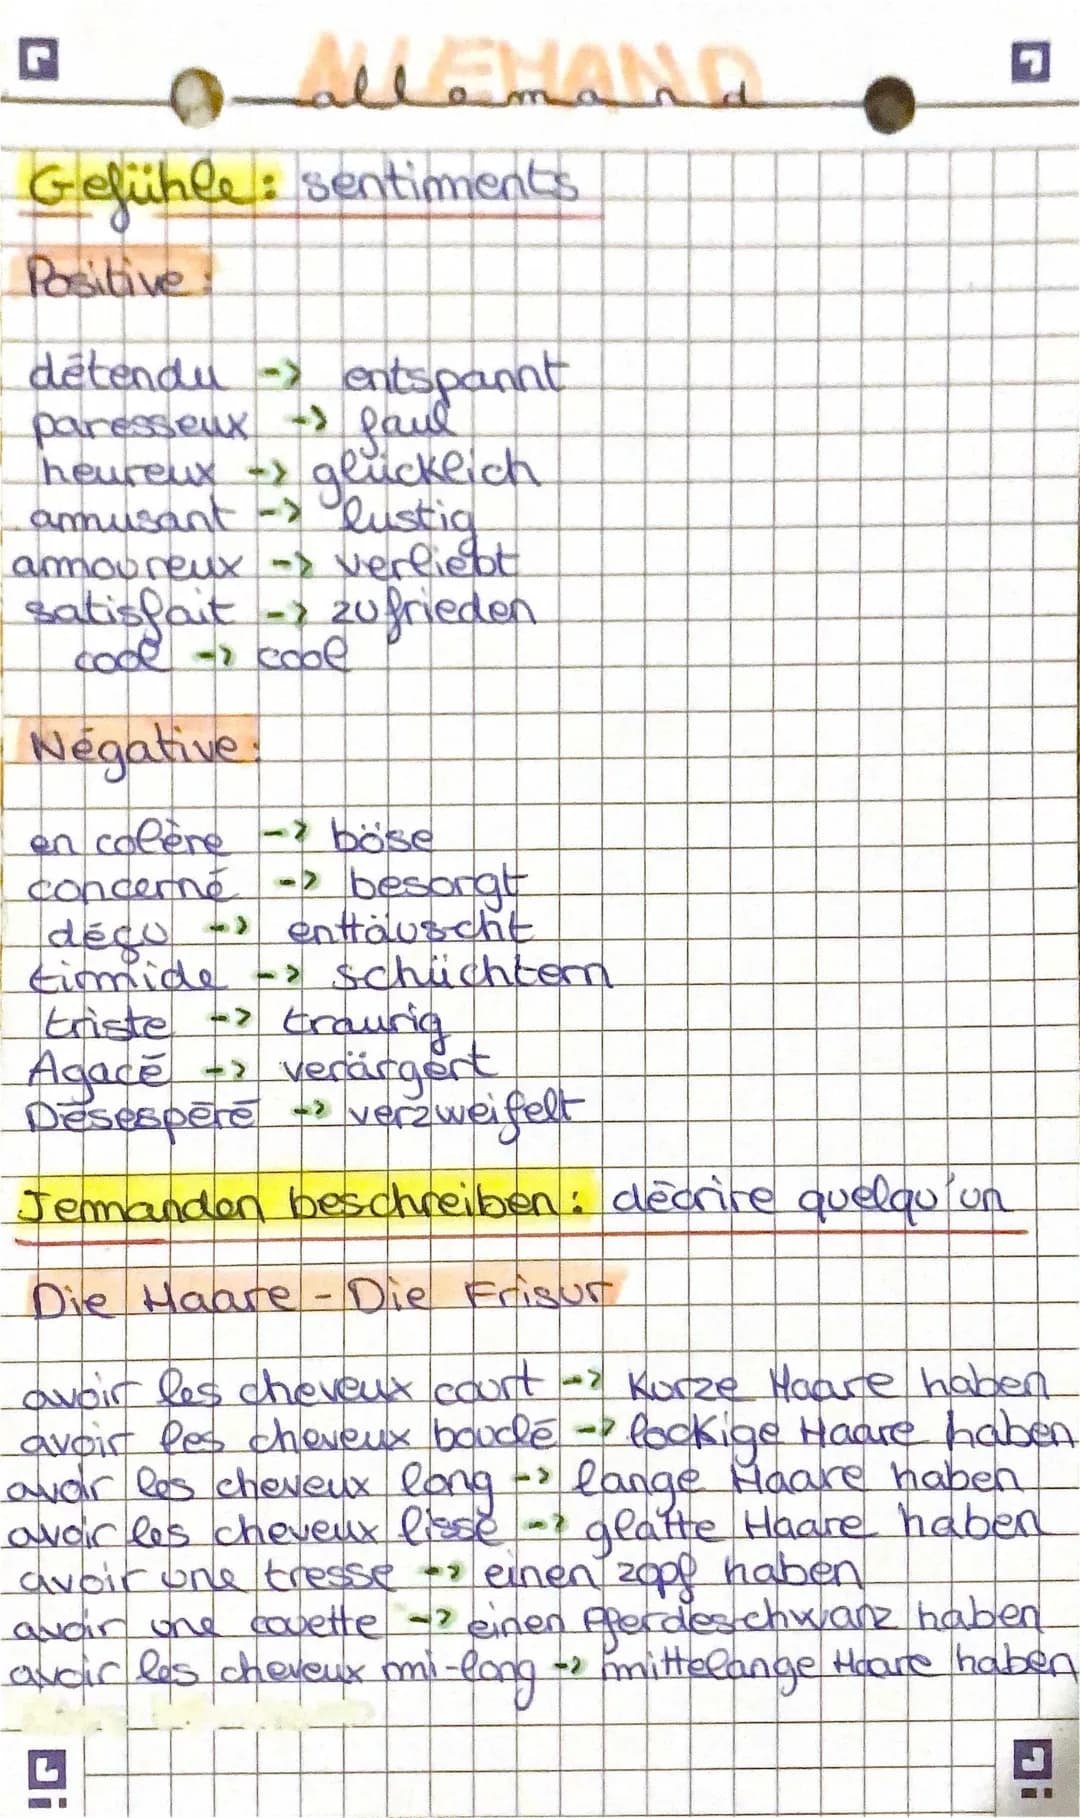 ALLEMAND
allemand
Gefühle : sentiments
Positive :
détendu -> entspannt
paresseux -> faul
heureux -> glücklich
amusant -> lustig
amoureux -> verliebt
satisfait -> zufrieden
cool -> cool
Négative :
en colère -> böse
concerné -> besorgt
déçu -> enttäuscht
timide -> schüchtern
triste -> traurig
Agacé -> verärgert
Désespéré -> verzweifelt
Jemanden beschreiben : décrire quelqu'un
Die Haare - Die Frisur
avoir les cheveux court -> Kurze Haare haben
avoir les cheveux bouclé -> lockige Haare haben
avoir les cheveux long -> lange Haare haben
avoir les cheveux lissé -> glatte Haare haben
avoir une tresse -> einen zopf haben
avoir une couette -> einen Pferdeschwanz haben
avoir les cheveux mi-long -> mittelange Haare haben